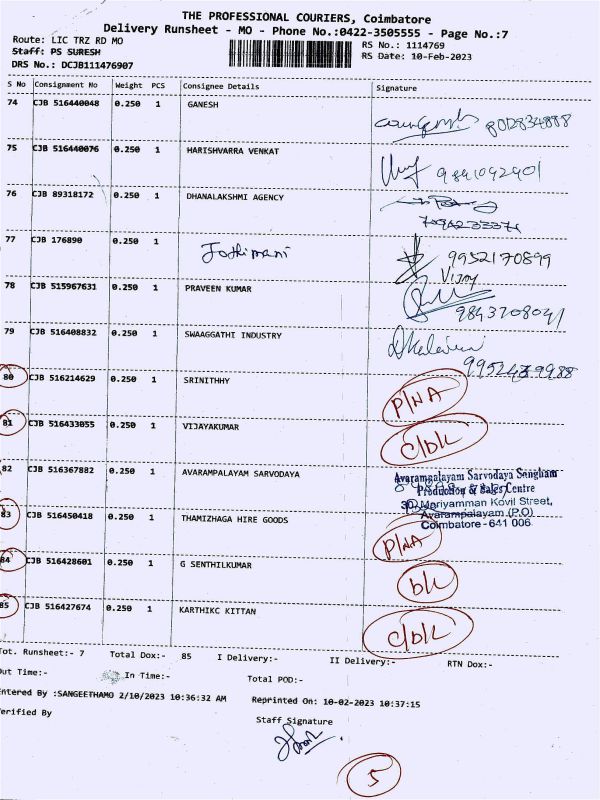 THE PROFESSIONAL COURIERS, Coimbatore
Delivery Runsheet - MO - Phone No.:0422-3505555 - Page No.:7
Route: LIC TRZ RD MO
RS No.: 1114769
Staff: PS SURESH
RS Date: 10-Feb-2023
DRS No.: DCJB111476907
S No Consignment No Weight PCS Consignee Details Signature
74 CJB 516440048 0.250 1 GANESH
75 CJB 516440076 0.250 1 HARISHVARRA VENKAT
76 CJB 89318172 0.250 1 DHANALAKSHMI AGENCY
77 CJB 176890 0.250 1 Jothimani 9952170899
Vijay
78 CJB 515967631 0.250 1 PRAVEEN KUMAR
9843708041
79 CJB 516408832 0.250 1 SWAAGGATHI INDUSTRY
80 CJB 516214629 0.250 1 SRINITHHY P/NA
81 CJB 516433055 0.250 1 VIJAYAKUMAR c/b/L
82 CJB 516367882 0.250 1 AVARAMPALAYAM SARVODAYA
Avarampalayam Sarvodaya Sangham
Production & Sales Centre
Mariyamman Kovil Street,
Avarampalayam (P.O)
Coimbatore - 641 006
83 CJB 516450418 0.250 1 THAMIZHAGA HIRE GOODS P/NA
84 CJB 516428601 0.250 1 G SENTHILKUMAR b/L
85 CJB 516427674 0.250 1 KARTHIKC KITTAN c/b/L
Tot. Runsheet:- 7 Total Dox:- 85 I Delivery:- II Delivery:- RTN Dox:-
Out Time:- In Time:- Total POD:-
Entered By :SANGEETHAMO 2/10/2023 10:36:32 AM Reprinted On: 10-02-2023 10:37:15
Verified By
Staff Signature
5